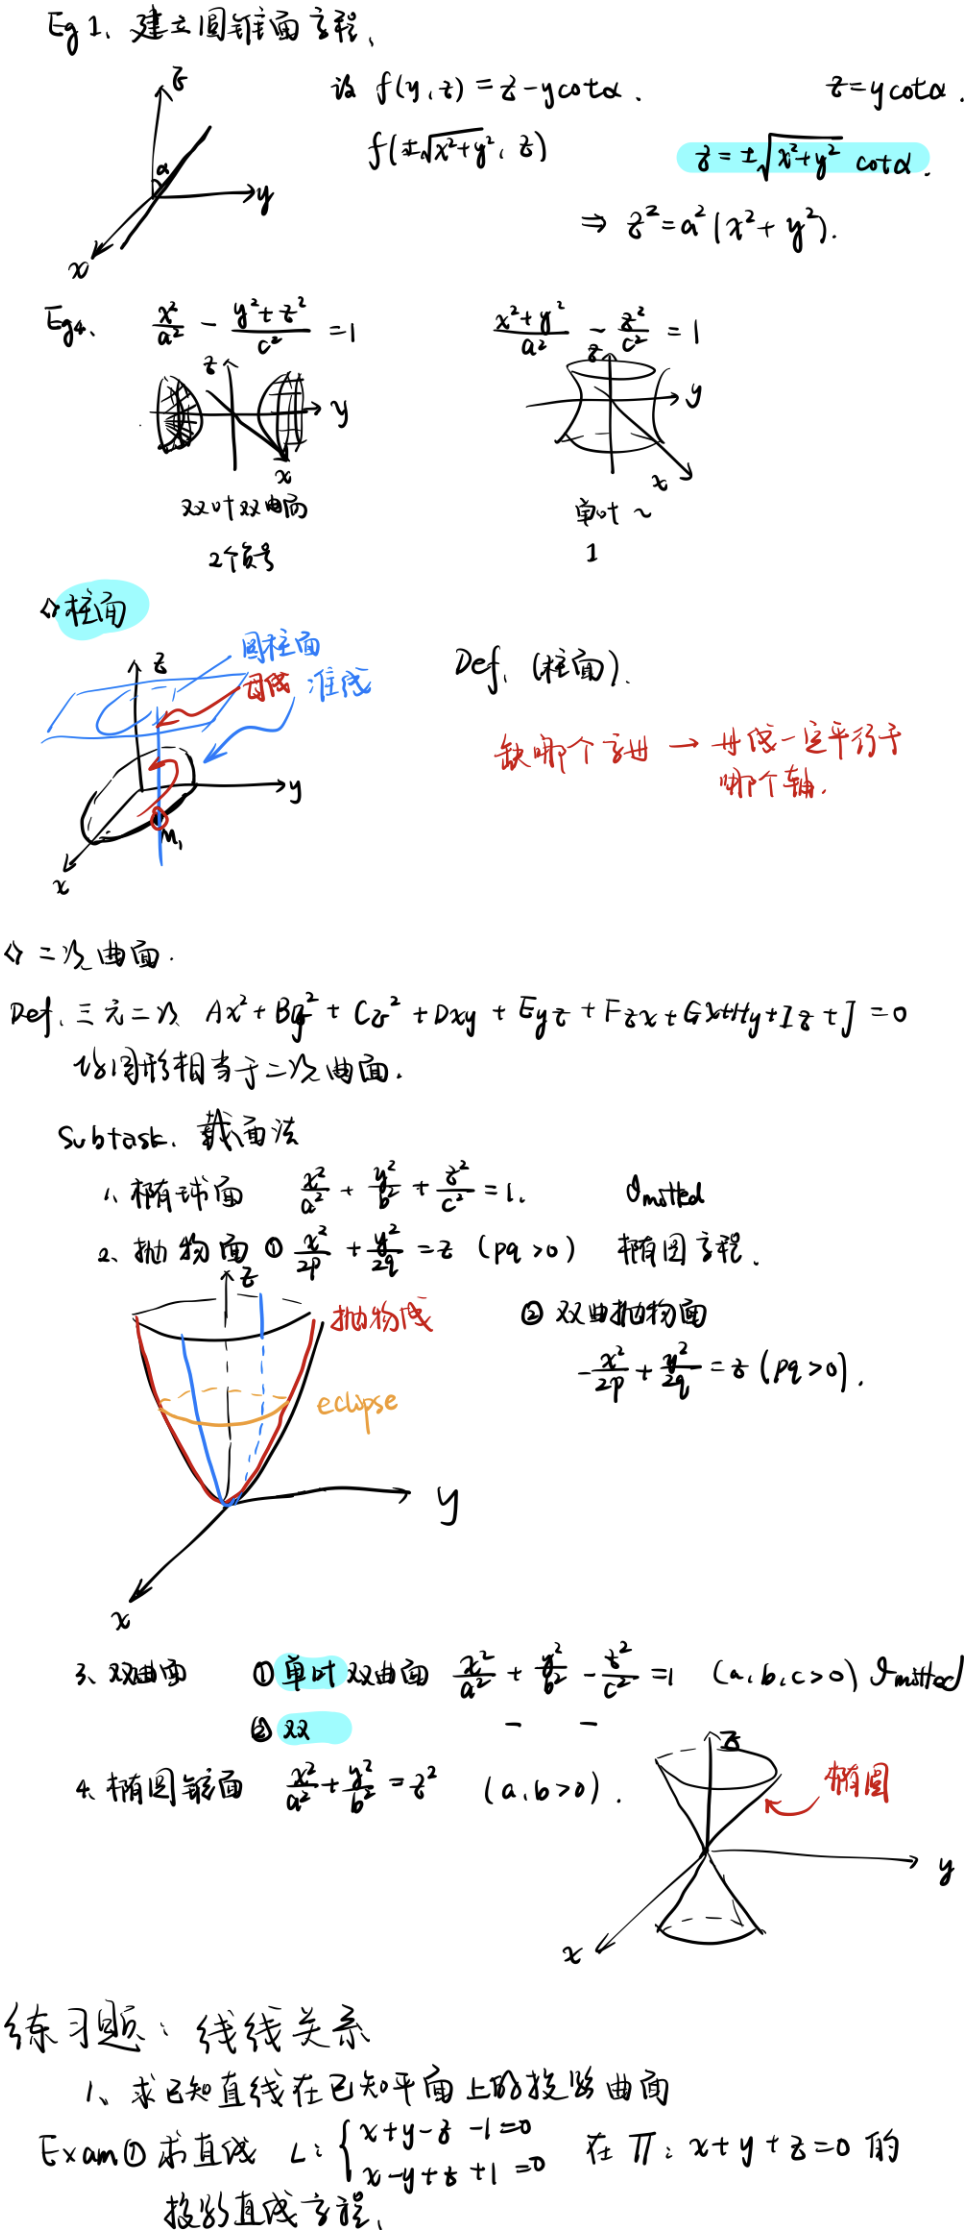 Eg 1、建立圆锥面方程、
z
设 f(y, z) = z - y cotα .
z = y cotα .
f(±√(x²+y²), z)
z = ±√(x²+y²) cotα .
α
y
x
⇒ z² = a²(x² + y²).
Eg4、 x²/a² - (y²+z²)/c² = 1
(x²+y²)/a² - z²/c² = 1
z
y
x
z
y
x
双叶双曲面
单叶 ~
2个负号
1
◇柱面
圆柱面
z
母线 准线
Def. (柱面).
缺哪个字母 → 母线一定平行于
哪个轴.
y
M₁
x
◇ 二次曲面.
Def. 三元二次 Ax² + By² + Cz² + Dxy + Eyz + Fzx + Gx+Hy+Iz + J = 0
的图形相当于二次曲面.
Subtask. 截面法
1、椭球面 x²/a² + y²/b² + z²/c² = 1. Omitted
2、抛物面 ① x²/2p + y²/2q = z (pq>0) 椭圆方程.
z
抛物线
② 双曲抛物面
-x²/2p + y²/2q = z (pq>0).
eclipse
y
x
3、双曲面 ①单叶双曲面 x²/a² + y²/b² - z²/c² = 1 (a,b,c>0) Omitted
② 双 - -
z
4、椭圆锥面 x²/a² + y²/b² = z² (a,b>0).
椭圆
y
x
练习题: 线线关系
1、求已知直线在已知平面上的投影曲面
Exam① 求直线 L: { x+y-z-1=0 在 Π: x+y+z=0 的
x-y+z+1=0
投影直线方程、